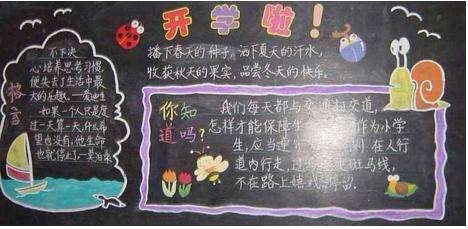 开学啦！
播下春天的种子，洒下夏天的汗水，
收获秋天的果实，品尝冬天的快乐。
格言
不下决
心培养思考习惯，
便失去了生活中最
大的乐趣。——爱迪生
如果一个人只是度
过一天算一天，什么希
里也没有，他生命
也就停止了。
你知
道吗？
我们每天都与交通打交道，
怎样才能保障生 作为小学
生，应当遵守 在人行
道内行走，过 走斑马线，
不在路上嬉戏 留。